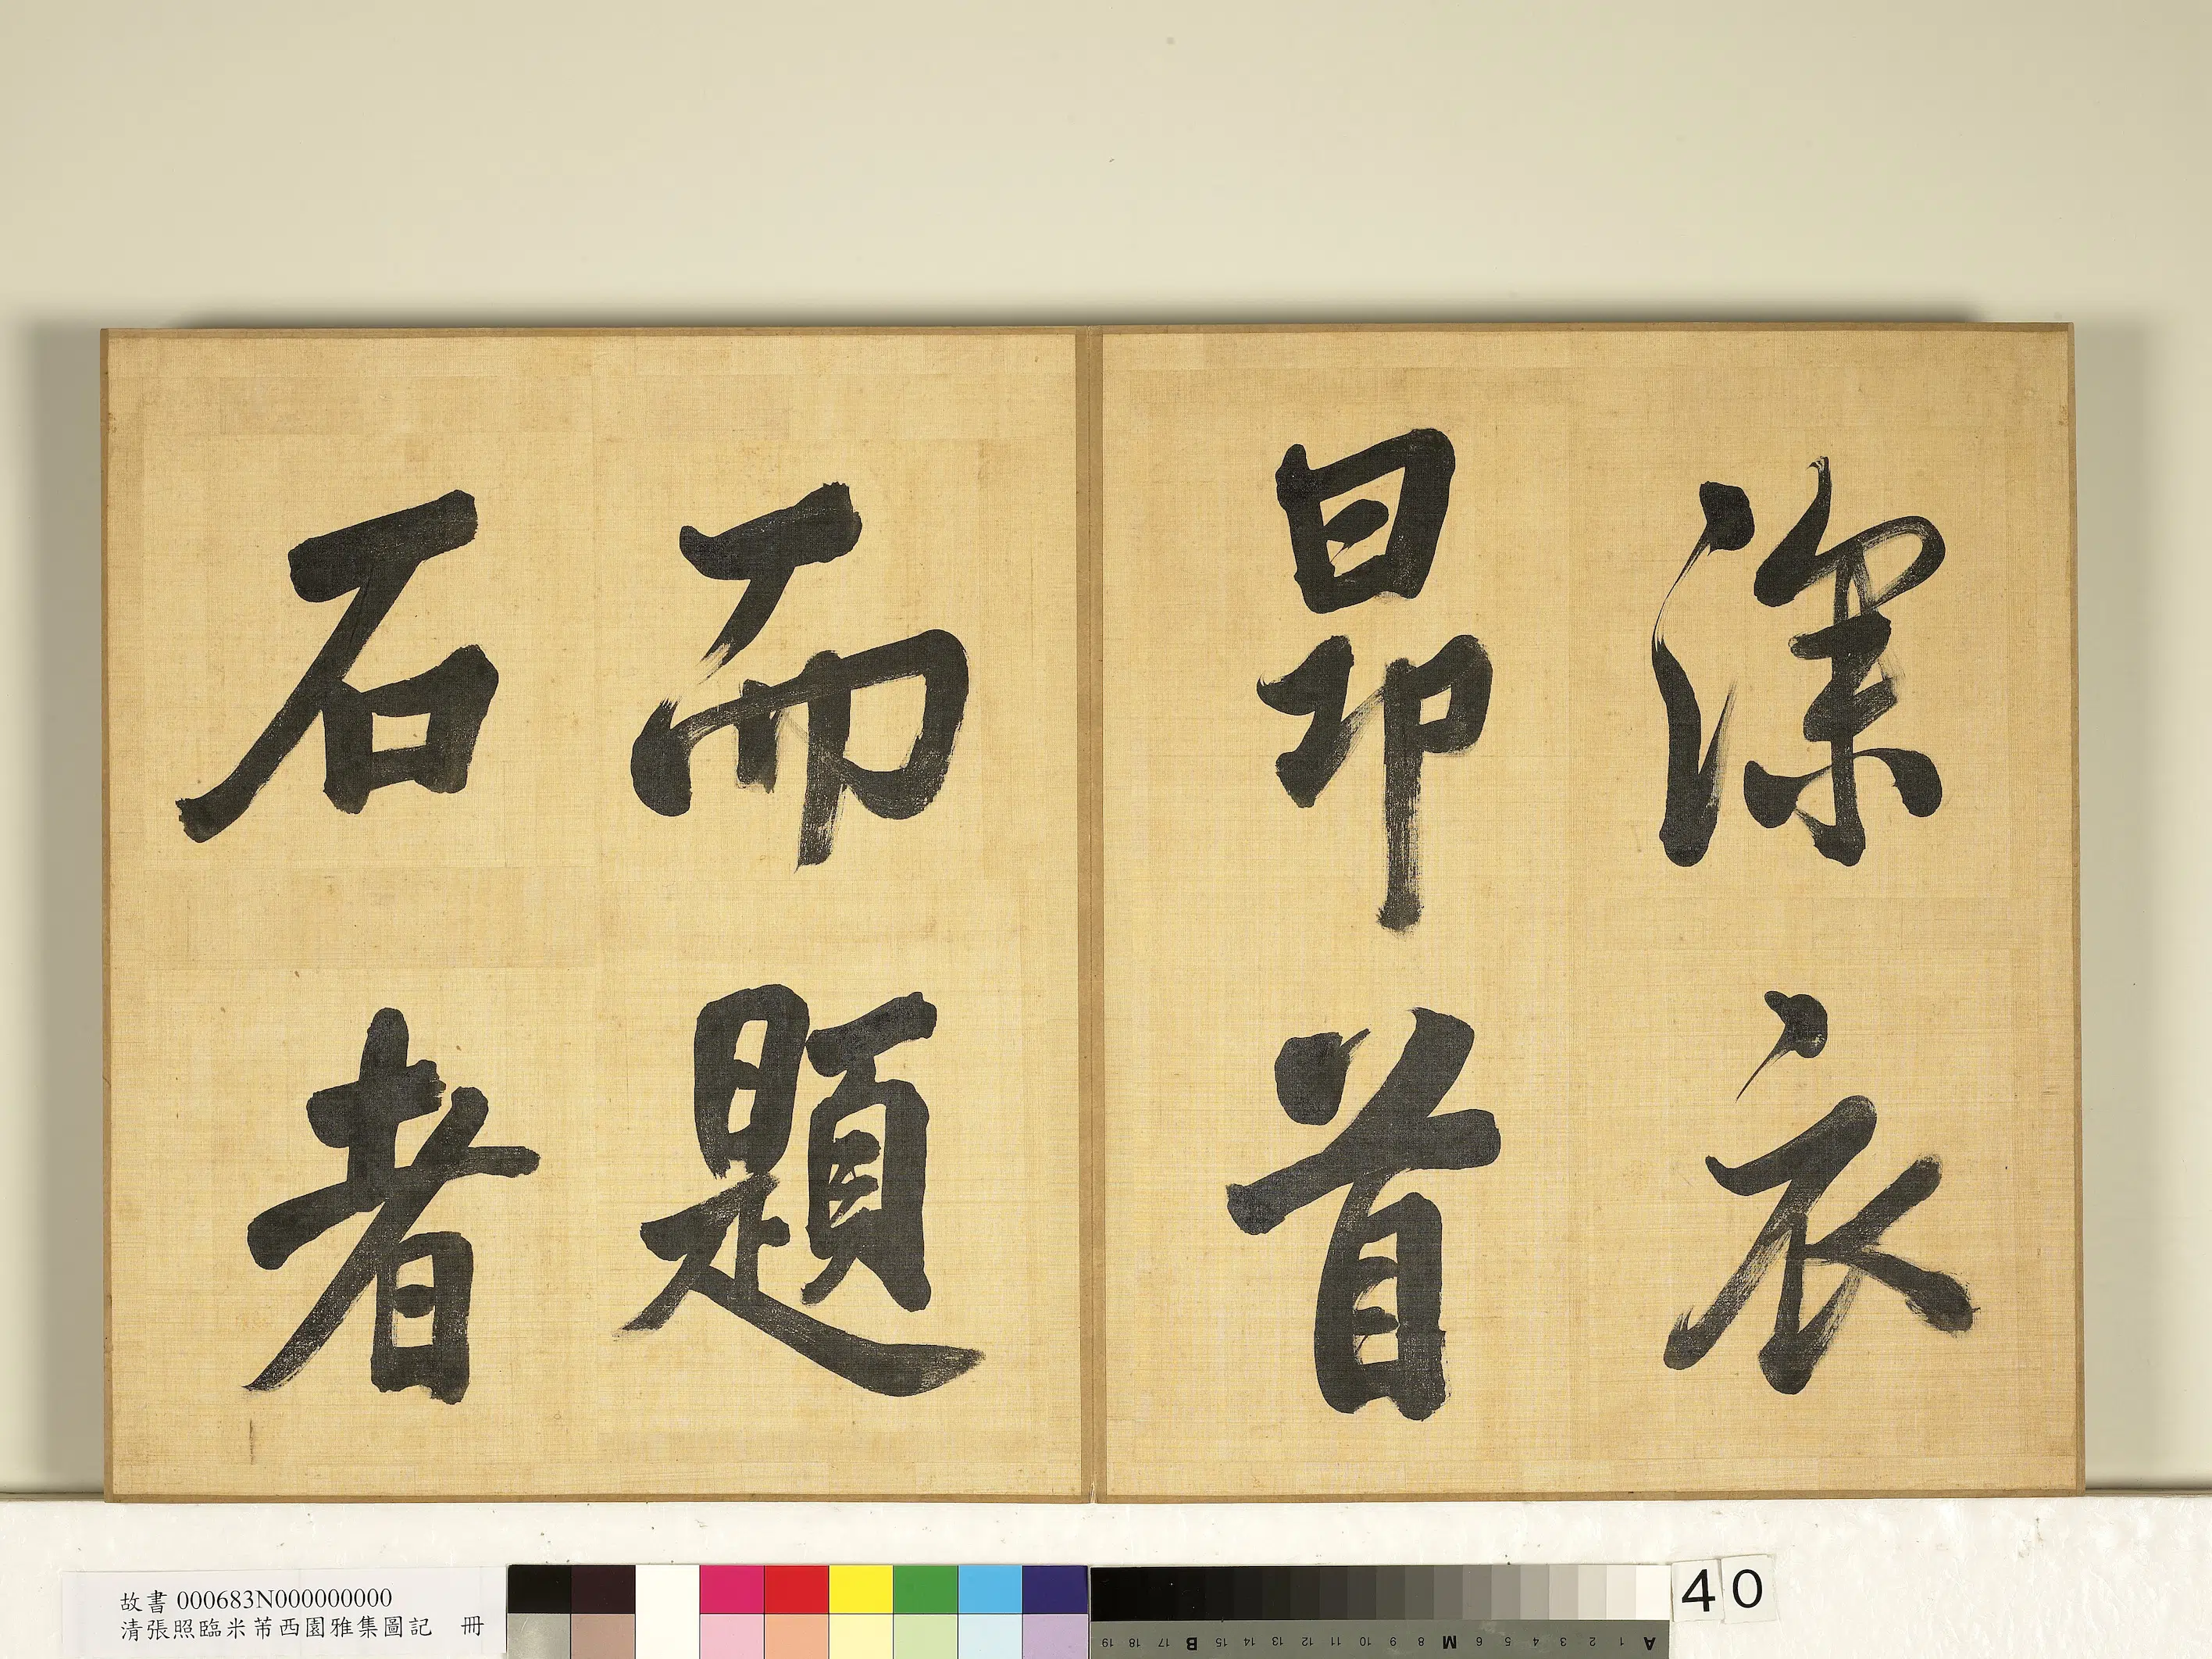 深衣
昂首
而題
石者
故書 000683N000000000
清張照臨米芾西園雅集圖記 冊
40
A 1 2 3 4 5 6 M 8 9 10 11 12 13 14 15 B 17 18 19